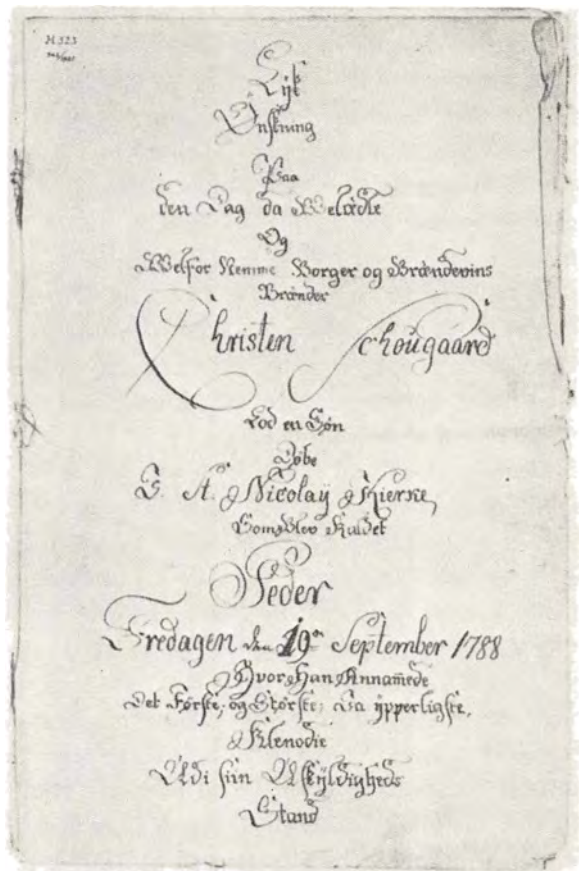 H 323
Lyk
Ønskning
Paa
den Dag da Velædle
Og
Velfor Nemme Borger og Brændevins
Brænder
Christen Schougaard
Lod en Søn
Døbe
I. St. Nicolaÿ Kierke,
Som Blev Kaldet
Peder
Fredagen den 19de September 1788
Hvor Han Annam̄ede
Det Første, og Største, Saa ÿpperligste,
Klenodie
Udi siin Uskÿldigheds
Stand